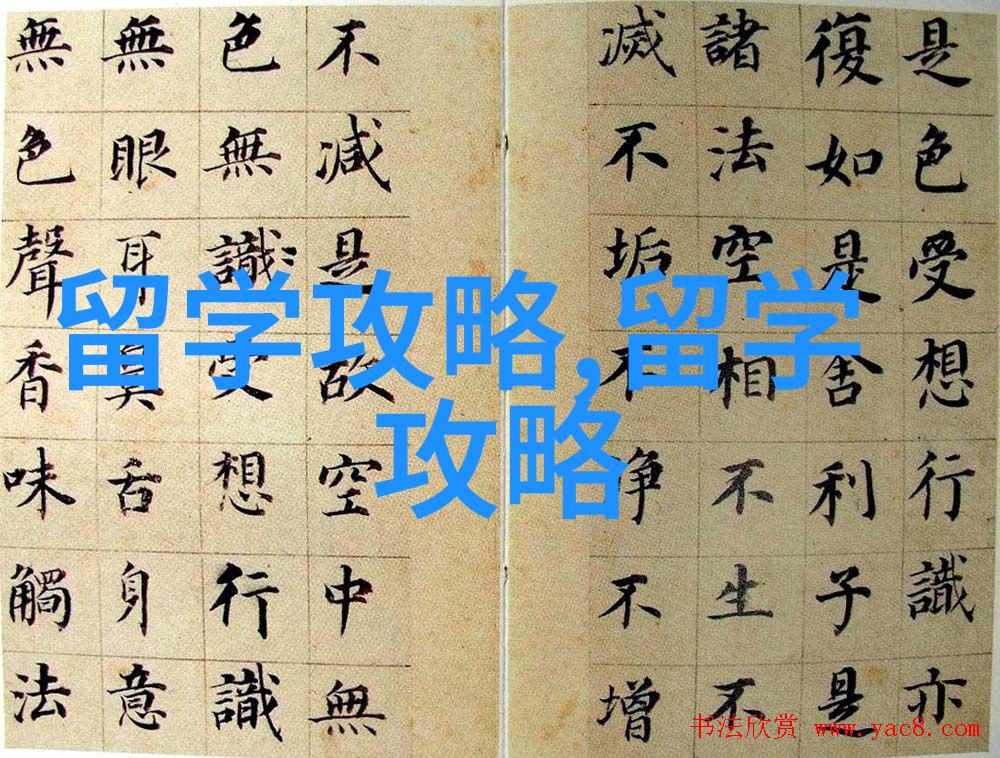 是色受想行識亦
復如是舍利子是
諸法空相不生不
滅不垢不净不增
不減是故空中無
色無識受想行識
無眼耳鼻舌身意
無色聲香味觸法
留学攻略,留学
攻略
书法欣赏 www.yac8.com